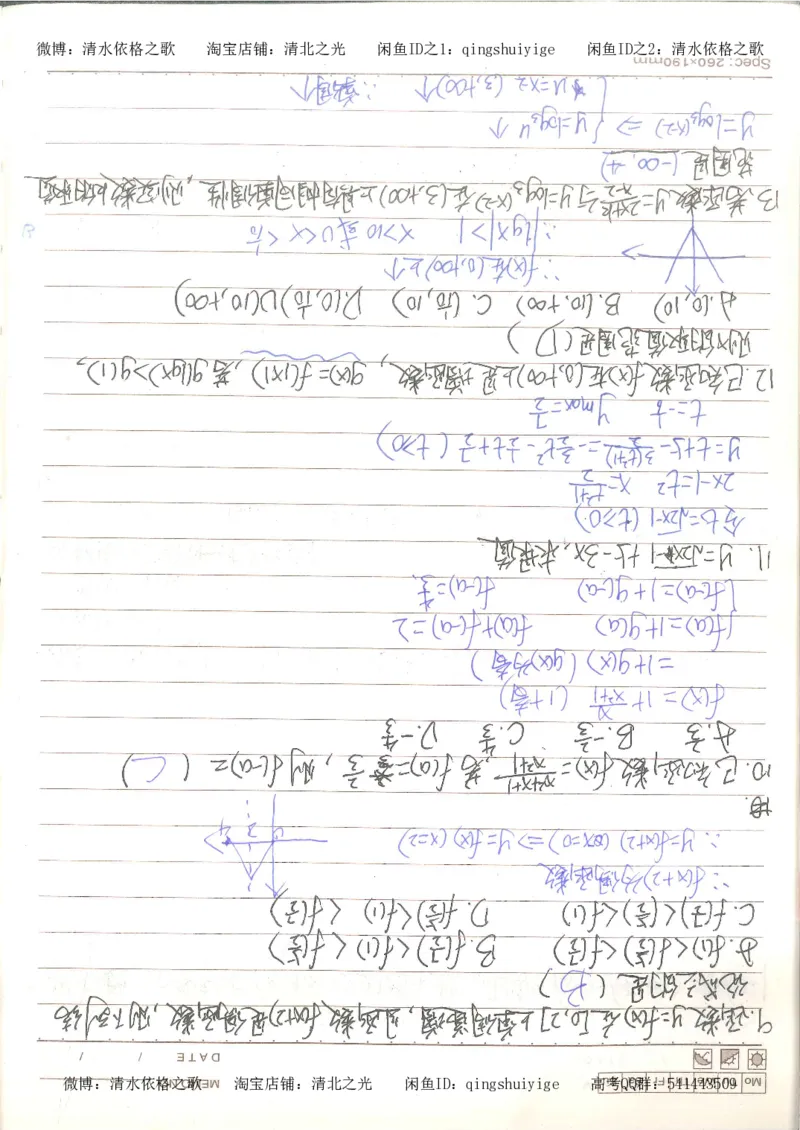 微博：清水依格之歌 淘宝店铺：清北之光 闲鱼ID：qingshuiyige 高考QQ群：541443509
DATE / /
9.函数y=f(x)在[0,2]上单调递增，且函数f(x+2)是偶函数，则下列结
论成立的是（B）
A.f(1)<f(5/2)<f(7/2) B.f(7/2)<f(1)<f(5/2)
C.f(7/2)<f(5/2)<f(1) D.f(5/2)<f(1)<f(7/2)
∵f(x+2)为偶函数
∴y=f(x+2) (x=0)⇒y=f(x) (x=2)
10.已知函数f(x)=(x²+x+1)/(x²+1)，若f(a)=2/3，则f(-a)=（C）
A.2/3 B.-2/3 C.4/3 D.-4/3
f(x)=1+x/(x²+1) (1+奇)
=1+g(x) (g(x)为奇)
f(a)=1+g(a) f(a)+f(-a)=2
f(-a)=1+g(-a) f(-a)=4/3
11. y=√2x-1+5-3x,求最值
令t=√2x-1 (t≥0)
2x-1=t² x=(t²+1)/2
y=t+5-3(t²+1)/2=-3/2t²+t+7/2 (t≥0)
12.已知函数f(x)在[0,+∞)上是增函数，g(x)=f(|x|)，若g(lgx)>g(1)，
则x的取值范围是（D）
A.(0,10) B.(10,+∞) C.(1/10,10) D.(0,1/10)∪(10,+∞)
∴f(x)在(0,+∞)上↑
∴|lgx|>1 x>10或0<x<1/10
13.若函数y=(2x+k)/(x-2)与y=log₃(x-2)在(3,+∞)上具有相同单调性，则实数k的取值
范围是(-∞,-4)
y=log₃(x-2)⇒ y=log₃u↑
u=x-2 (3,+∞)↑ ∴单调↑
Spec: 260×190mm
微博：清水依格之歌 淘宝店铺：清北之光 闲鱼ID之1：qingshuiyige 闲鱼ID之2：清水依格之歌